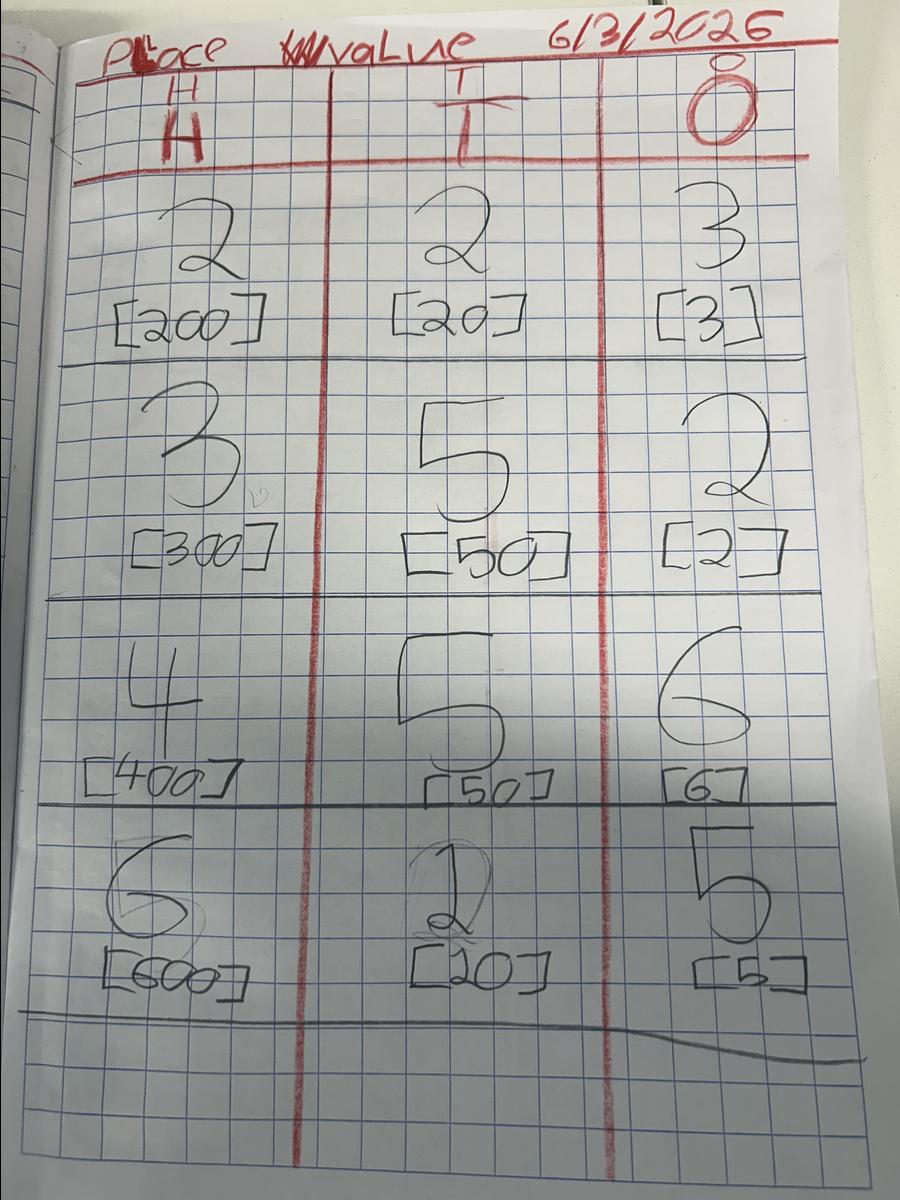 Place value 6/3/2026
H T O
H T O
2 2 3
[200] [20] [3]
3 5 2
[300] [50] [2]
4 5 6
[400] [50] [6]
6 2 5
[600] [20] [5]